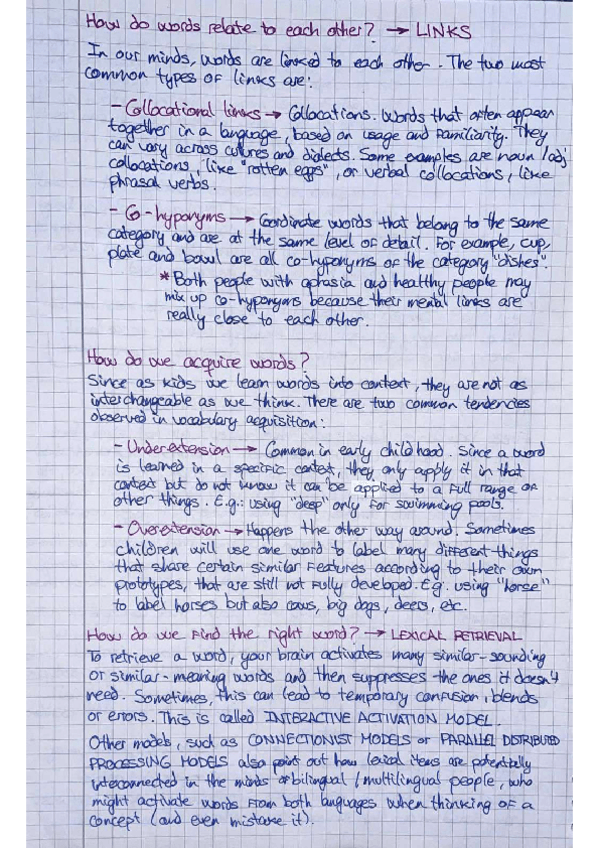 How do words relate to each other? → LINKS
In our minds, words are linked to each other. The two most
common types of links are:
- Collocational links → Collocations. Words that often appear
together in a language, based on usage and familiarity. They
can vary across cultures and dialects. Some examples are noun/adj
collocations, like "rotten eggs", or verbal collocations, like
phrasal verbs.
- Co-hyponyms → Coordinate words that belong to the same
category and are at the same level of detail. For example, cup,
plate and bowl are all co-hyponyms of the category "dishes".
* Both people with aphasia and healthy people may
mix up co-hyponyms because their mental links are
really close to each other.
How do we acquire words?
Since as kids we learn words into context, they are not as
interchangeable as we think. There are two common tendencies
observed in vocabulary acquisition:
- Underextension → Common in early childhood. Since a word
is learned in a specific context, they only apply it in that
context but do not know it can be applied to a full range of
other things. E.g.: using "deep" only for swimming pools.
- Overextension → Happens the other way around. Sometimes
children will use one word to label many different things
that share certain similar features according to their own
prototypes, that are still not fully developed. E.g.: using "horse"
to label horses but also cows, big dogs, deers, etc.
How do we find the right word? → LEXICAL RETRIEVAL
To retrieve a word, your brain activates many similar-sounding
or similar-meaning words and then suppresses the ones it doesn't
need. Sometimes, this can lead to temporary confusion, blends
or errors. This is called INTERACTIVE ACTIVATION MODEL.
Other models, such as CONNECTIONIST MODELS or PARALLEL DISTRIBUTED
PROCESSING MODELS also point out how lexical items are potentially
interconnected in the minds of bilingual/multilingual people, who
might activate words from both languages when thinking of a
concept (and even mistake it).